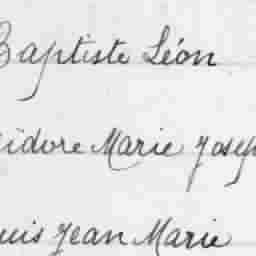 Baptiste Léon
sidore Marie Josep
uis Jean Marie